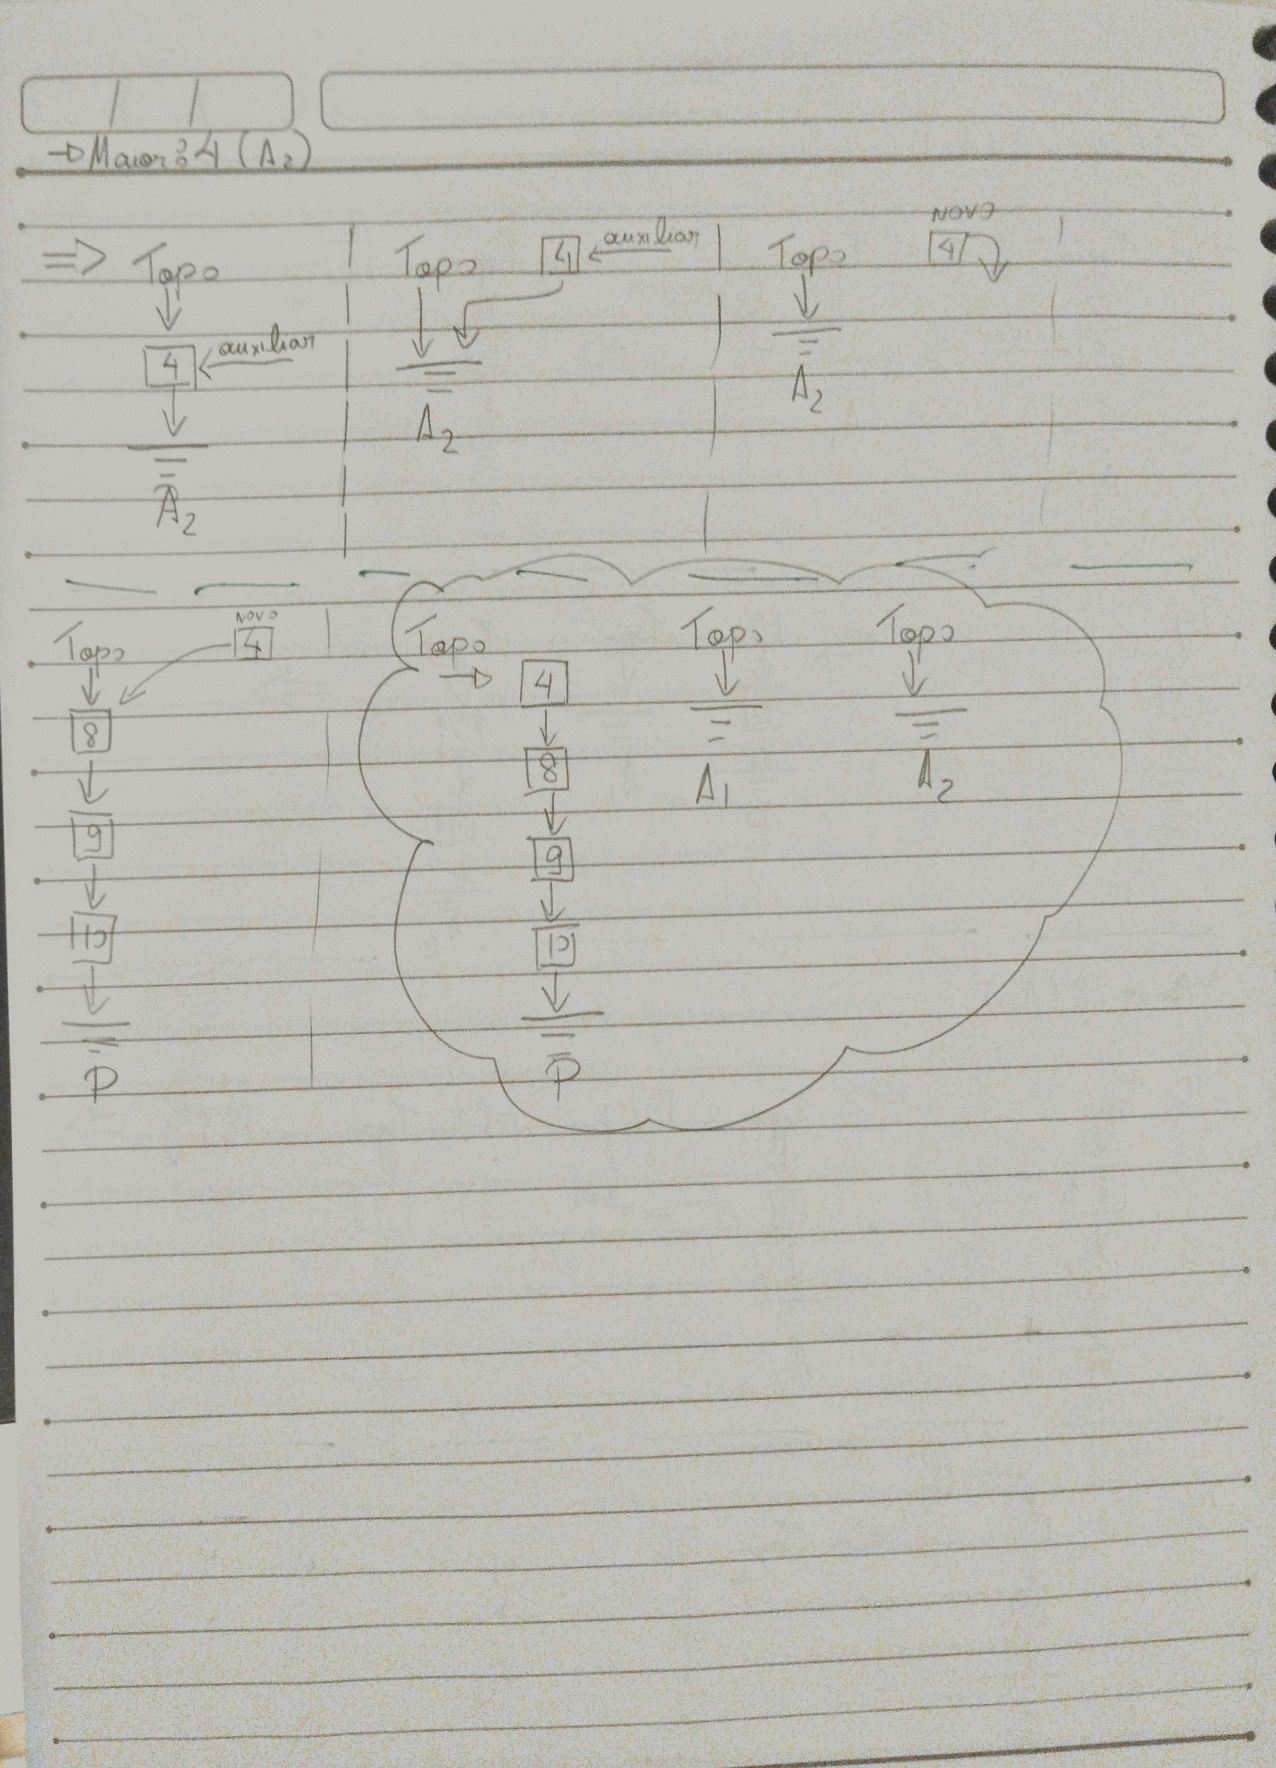 → Maior: 4 (A2)
=> Topo
4 ← auxiliar
A2
Topo 4 ← auxiliar
A2
Topo NOVO
4
A2
Topo NOVO
4
8
9
10
P
Topo → 4
8
9
10
P
Topo
A1
Topo
A2